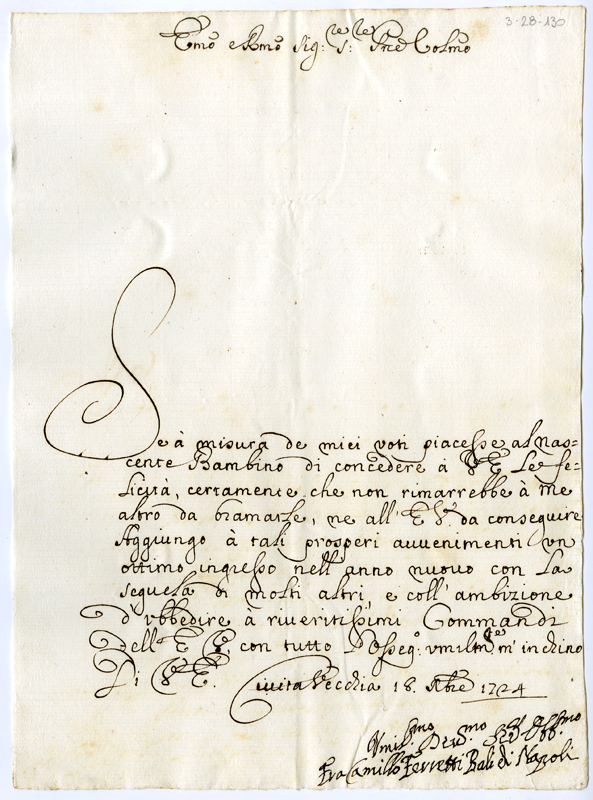 3-28-130
Emo e Rmo Sig:re S:re Pne Colmo
Se à misura de miei voti piacesse al Nas=
cente Bambino di concedere à VE Le fe=
licità, certamente che non rimarrebbe à me
altro da bramarle, ne all' E V. da conseguire
Aggiungo à tali prosperi auuenimenti vn
ottimo ingresso nell' anno nuouo con La
seguela di molti altri, e coll' ambizione
d' vbbedire à riueritissimi Commandi
dell' E V, con tutto L'osseq:o vmilmte m' inchino
Di VE. Ciuita Vecchia 18. Xbre 1724
Vmilissmo Deumo Obbmo
Fra Camillo Ferretti Bali di Napoli